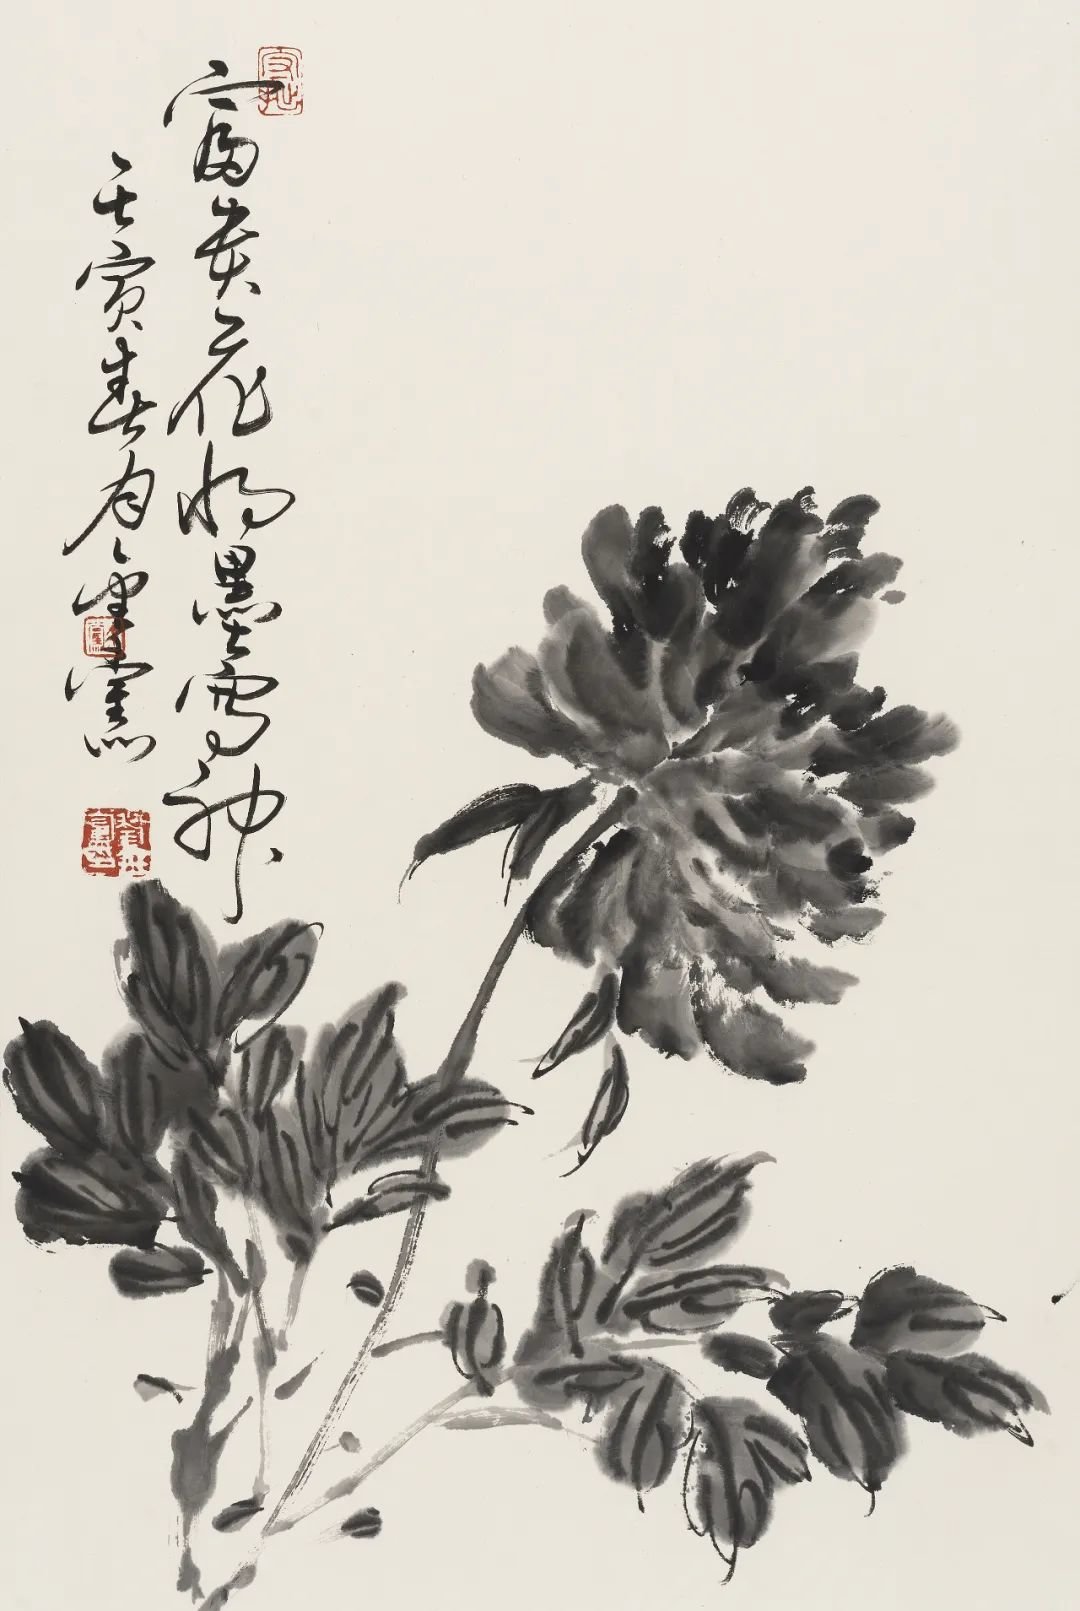 富贵花将墨写神
壬寅春月金